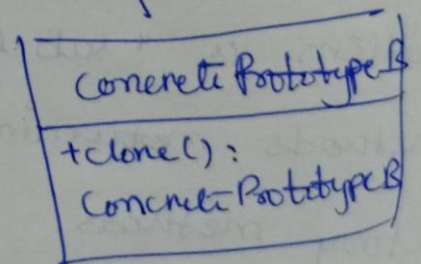 Concrete Prototype B
+clone():
Concrete Prototype B